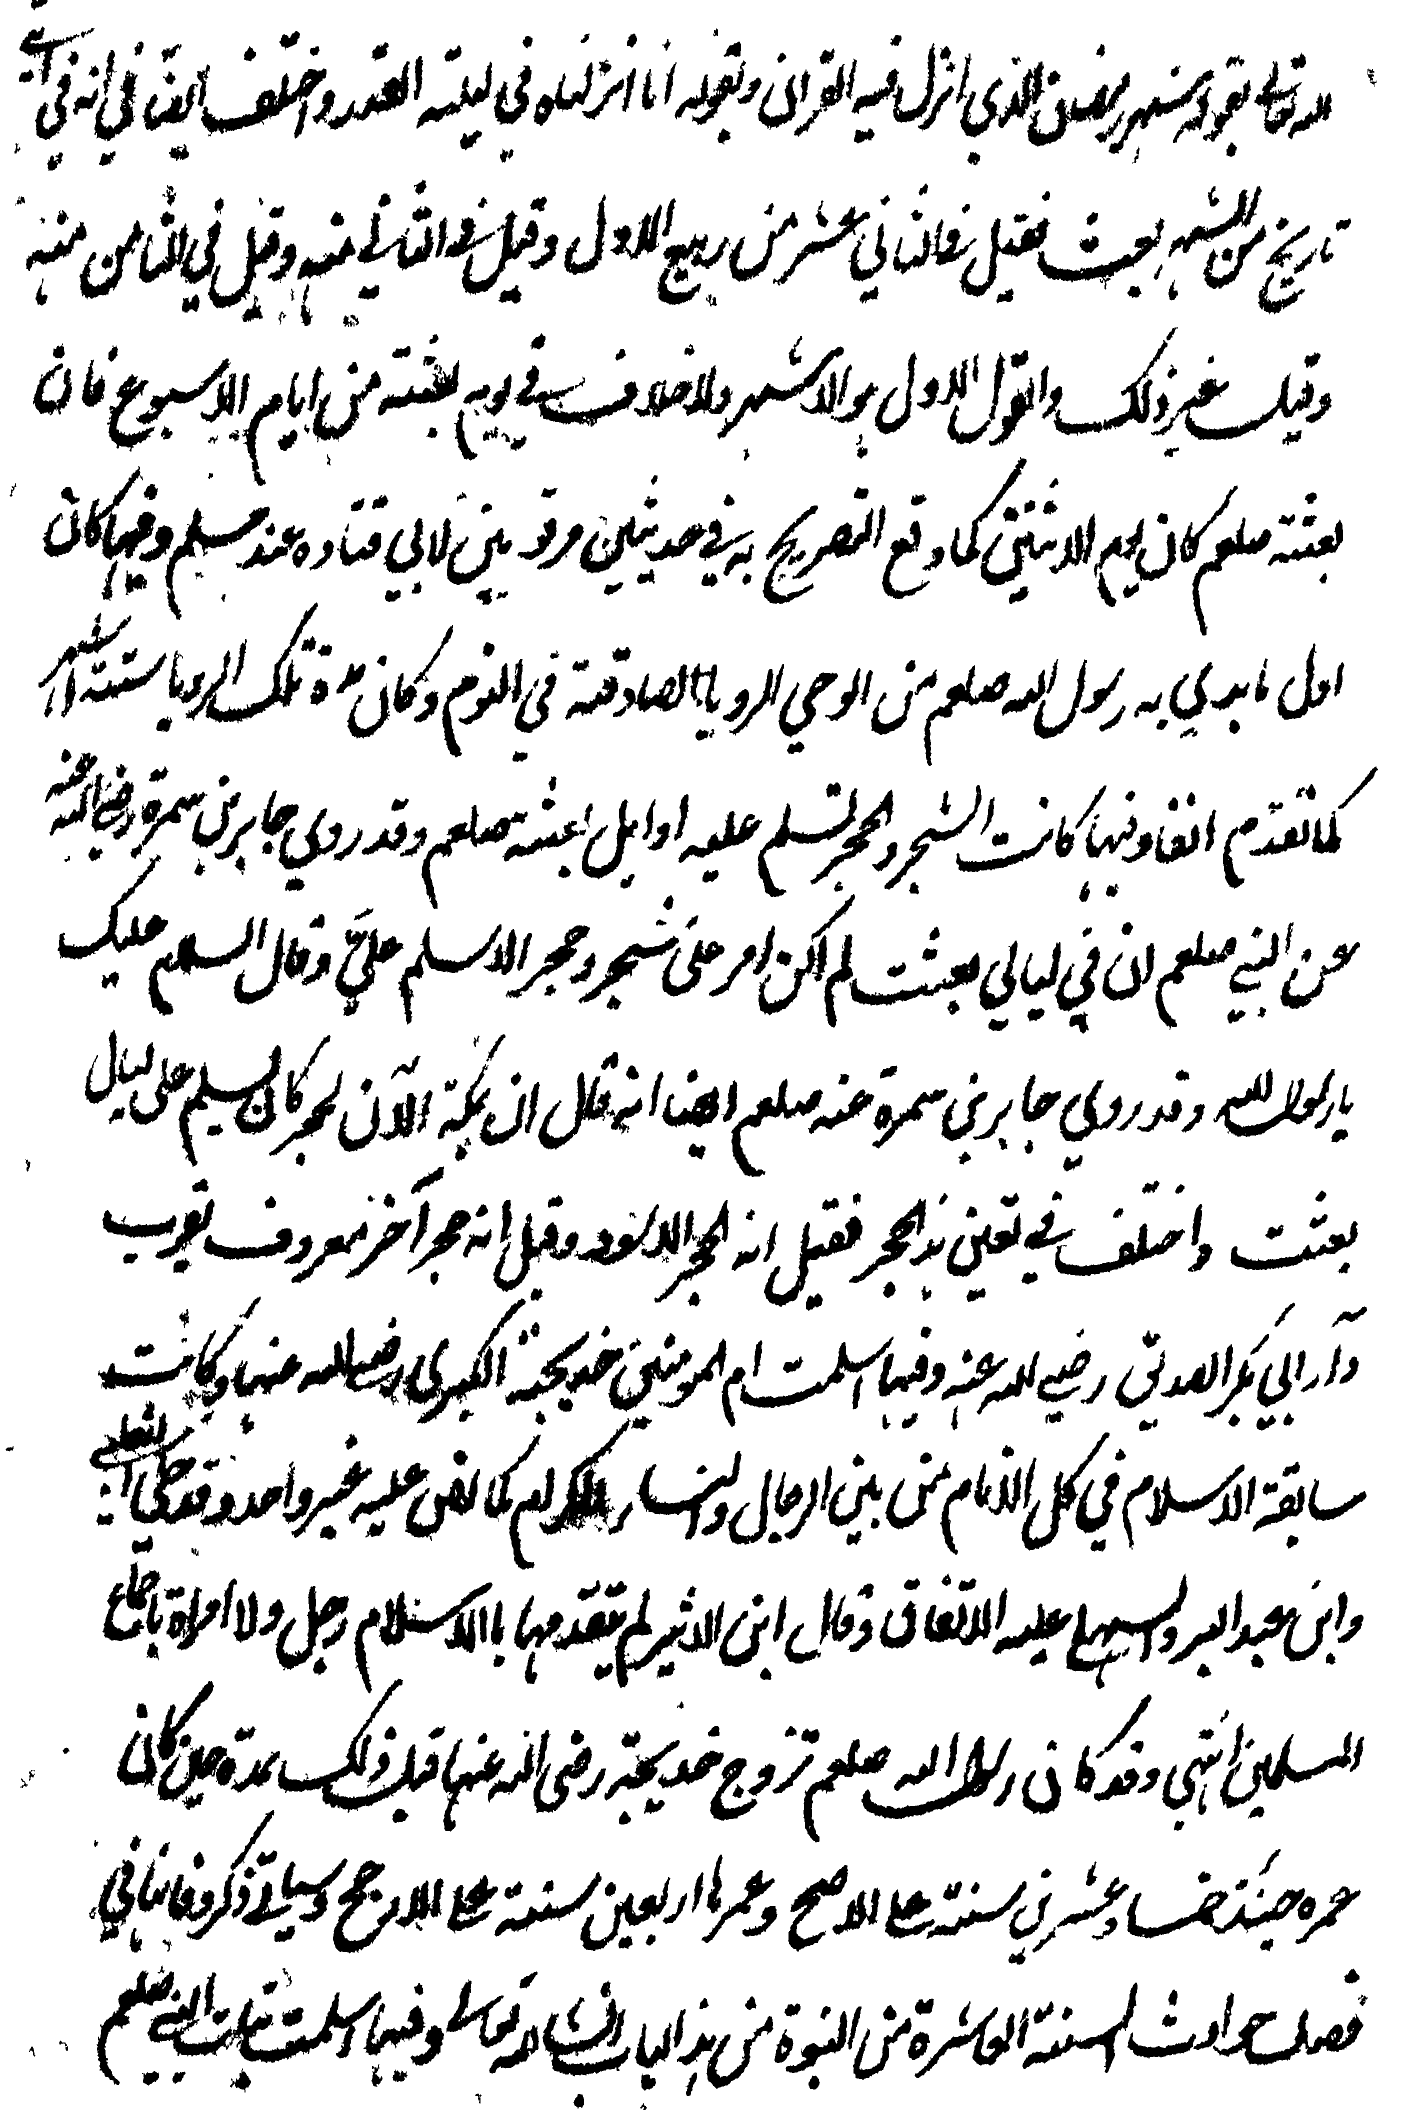 الله تعالى بقوله شهر رمضان الذي انزل فيه القران وبقوله انا انزلناه في ليلة القدر واختلف ايضا في انه في اي
تاريخ من الشهر بعث فقيل في الثاني عشر من ربيع الاول وقيل في الثاني منه وقيل في الثامن منه
وقيل غير ذلك والقول الاول هو الاشهر ولا خلاف في يوم بعثته من ايام الاسبوع فان
بعثته صلعم كان يوم الاثنين كما وقع التصريح به في حديثين مرفوعين لابي قتاده عند مسلم وفيها كان
اول ما بدي به رسول الله صلعم من الوحي الرويا الصادقة في النوم وكان مدة تلك الرويا ستة اشهر
كما تقدم انفا وفيها كانت الشجر والحجر تسلم عليه اوايل بعثته صلعم وقد روي جابر بن سمرة رضي الله عنه
عن النبي صلعم ان في ليالي بعثت لم اكن امر على شجر وحجر الا سلم عليّ وقال السلام عليك
يا رسول الله وقد روي جابر بن سمرة عنه صلعم ايضا انه قال ان بمكة الآن لحجر كان يسلم على ليال
بعثت واختلف في تعين هذا الحجر فقيل انه الحجر الاسود وقيل انه حجر آخر معروف بقرب
دار ابي بكر الصديق رضي الله عنه وفيها اسلمت ام المومنين خديجة الكبرى رضي الله عنها وكانت
سابقة الاسلام في كل الانام من بين الرجال والنساء الكرام كما نص عليه غير واحد وقد حكي الثعلبي
وابن عبد البر والسهيلي عليه الاتفاق وقال ابن الاثير لم يتقدمها بالاسلام رجل ولا امراة باجماع
المسلمين انتهي وقد كان رسول الله صلعم تزوج خديجة رضى الله عنها قبل ذلك بمدة حين كان
عمره حينئذ خمسا وعشرين سنة على الاصح وعمرها اربعين سنة على الارجح وسياتي ذكر وفاتها في
فصل حوادث السنة العاشرة من النبوة من هذا الباب انشا الله تعالى وفيها اسلمت بنات النبي صلعم